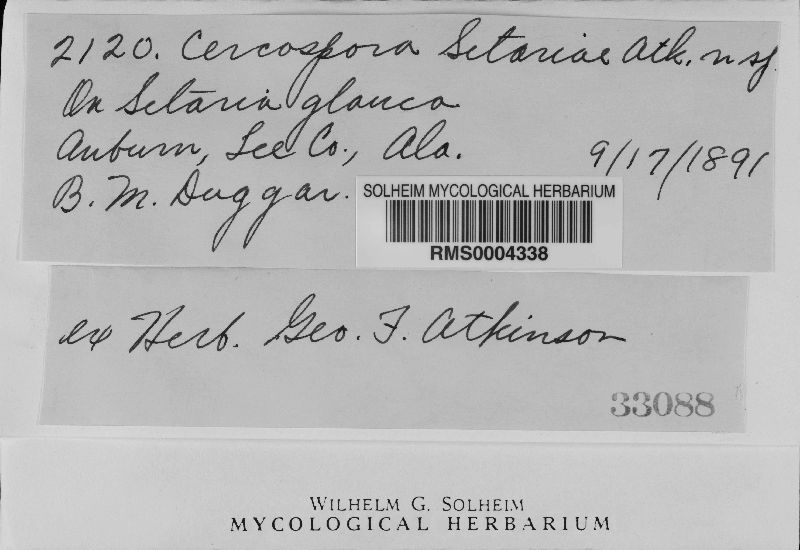 2120. Cercospora Setariae Atk. n sp.
On Setaria glauca
Auburn, Lee Co., Ala. 9/17/1891
B. M. Duggar.
SOLHEIM MYCOLOGICAL HERBARIUM
RMS0004338
ex Herb. Geo. F. Atkinson
33088
WILHELM G. SOLHEIM
MYCOLOGICAL HERBARIUM